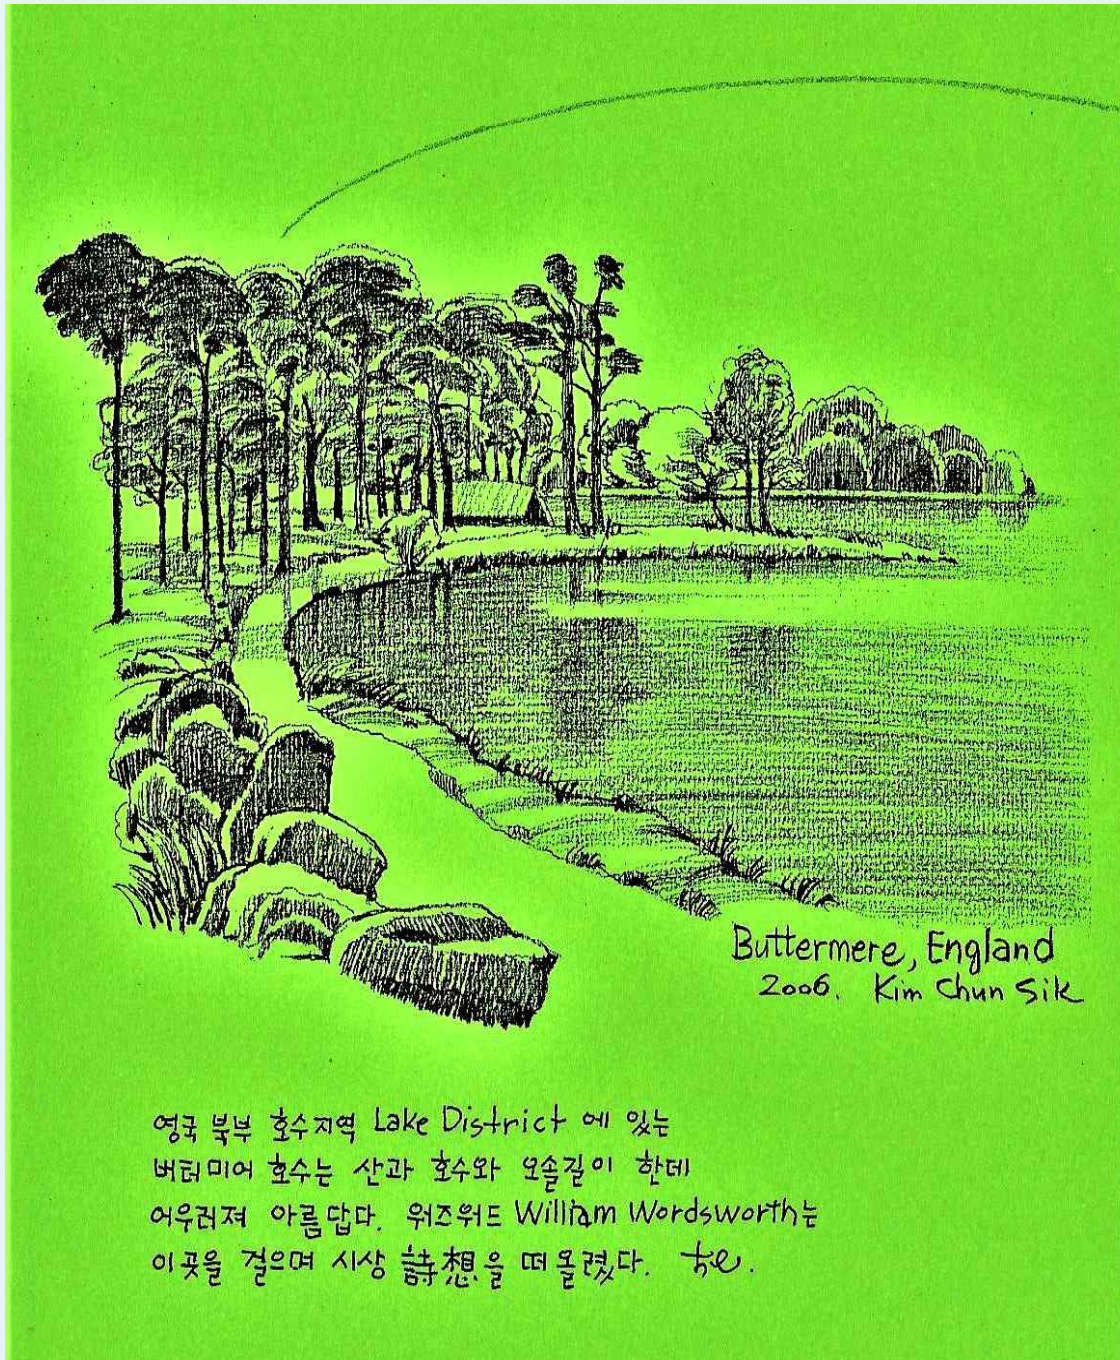 Buttermere, England
2006. Kim Chun Sik
영국 북부 호수지역 Lake District 에 있는
버터미어 호수는 산과 호수와 오솔길이 한데
어우러져 아름답다. 워즈워드 William Wordsworth는
이곳을 걸으며 시상 詩想을 떠올렸다.